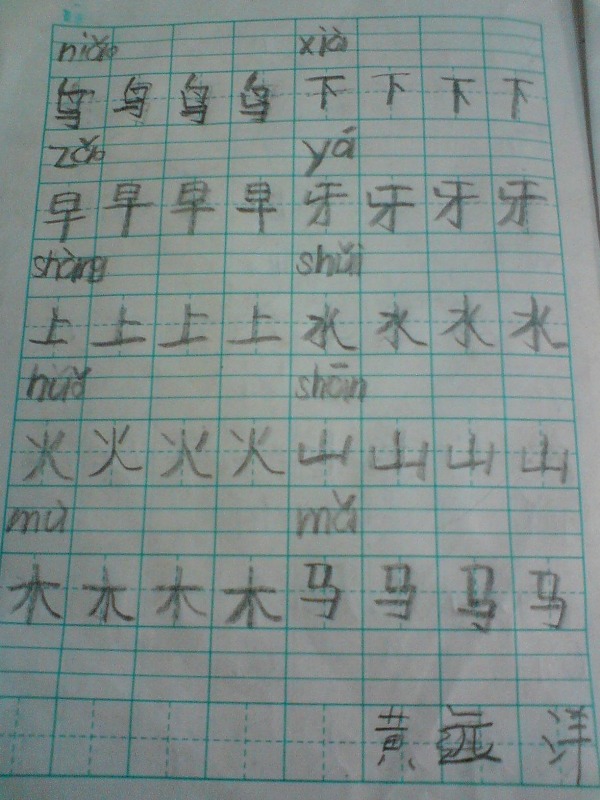 niǎo xià
鸟 鸟 鸟 鸟 下 下 下 下
zǎo yá
早 早 早 早 牙 牙 牙 牙
shàng shuǐ
上 上 上 上 水 水 水 水
huǒ shān
火 火 火 火 山 山 山 山
mù mǎ
木 木 木 木 马 马 马 马
黄 远 洋